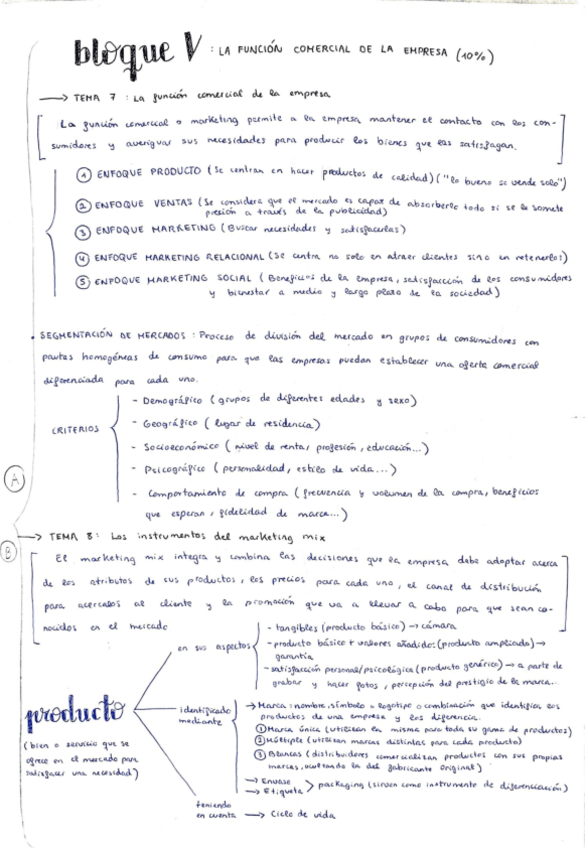 bloque V : LA FUNCIÓN COMERCIAL DE LA EMPRESA (10%)
→ TEMA 7 : La función comercial de la empresa
La función comercial o marketing permite a la empresa mantener el contacto con los con-
sumidores y averiguar sus necesidades para producir los bienes que las satisfagan.
① ENFOQUE PRODUCTO (Se centran en hacer productos de calidad) ("lo bueno se vende solo")
② ENFOQUE VENTAS (Se considera que el mercado es capaz de absorberlo todo si se lo somete
presión a través de la publicidad)
③ ENFOQUE MARKETING (Buscar necesidades y satisfacerlas)
④ ENFOQUE MARKETING RELACIONAL (Se centra no solo en atraer clientes sino en retenerlos)
⑤ ENFOQUE MARKETING SOCIAL (Beneficios de la empresa, satisfacción de los consumidores
y bienestar a medio y largo plazo de la sociedad)
• SEGMENTACIÓN DE MERCADOS : Proceso de división del mercado en grupos de consumidores con
pautas homogéneas de consumo para que las empresas puedan establecer una oferta comercial
diferenciada para cada uno.
CRITERIOS
- Demográfico (grupos de diferentes edades y sexo)
- Geográfico (lugar de residencia)
- Socioeconómico (nivel de renta, profesión, educación...)
- Psicográfico (personalidad, estilo de vida...)
- Comportamiento de compra (frecuencia y volumen de la compra, beneficios
que esperan, fidelidad de marca...)
A
B
→ TEMA 8: Los instrumentos del marketing mix
El marketing mix integra y combina las decisiones que la empresa debe adoptar acerca
de los atributos de sus productos, los precios para cada uno, el canal de distribución
para acercarlos al cliente y la promoción que va a llevar a cabo para que sean co-
nocidos en el mercado
producto
(bien o servicio que se
ofrece en el mercado para
satisfacer una necesidad)
en sus aspectos
- tangibles (producto básico) → cámara
- producto básico + valores añadido: (producto ampliado) →
garantía
- satisfacción personal/psicológica (producto genérico) → a parte de
grabar y hacer fotos, percepción del prestigio de la marca...
identificado
mediante
→ Marca : nombre, símbolo = logotipo o combinación que identifica los
productos de una empresa y los diferencia.
① Marca única (utilizan la misma para toda su gama de productos)
② Múltiple (utilizan marcas distintas para cada producto)
③ Blancas (distribuidores comercializan productos con sus propias
marcas, ocultando la del fabricante original)
→ Envase
→ Etiqueta
> packaging (sirven como instrumento de diferenciación)
teniendo
en cuenta → Ciclo de vida